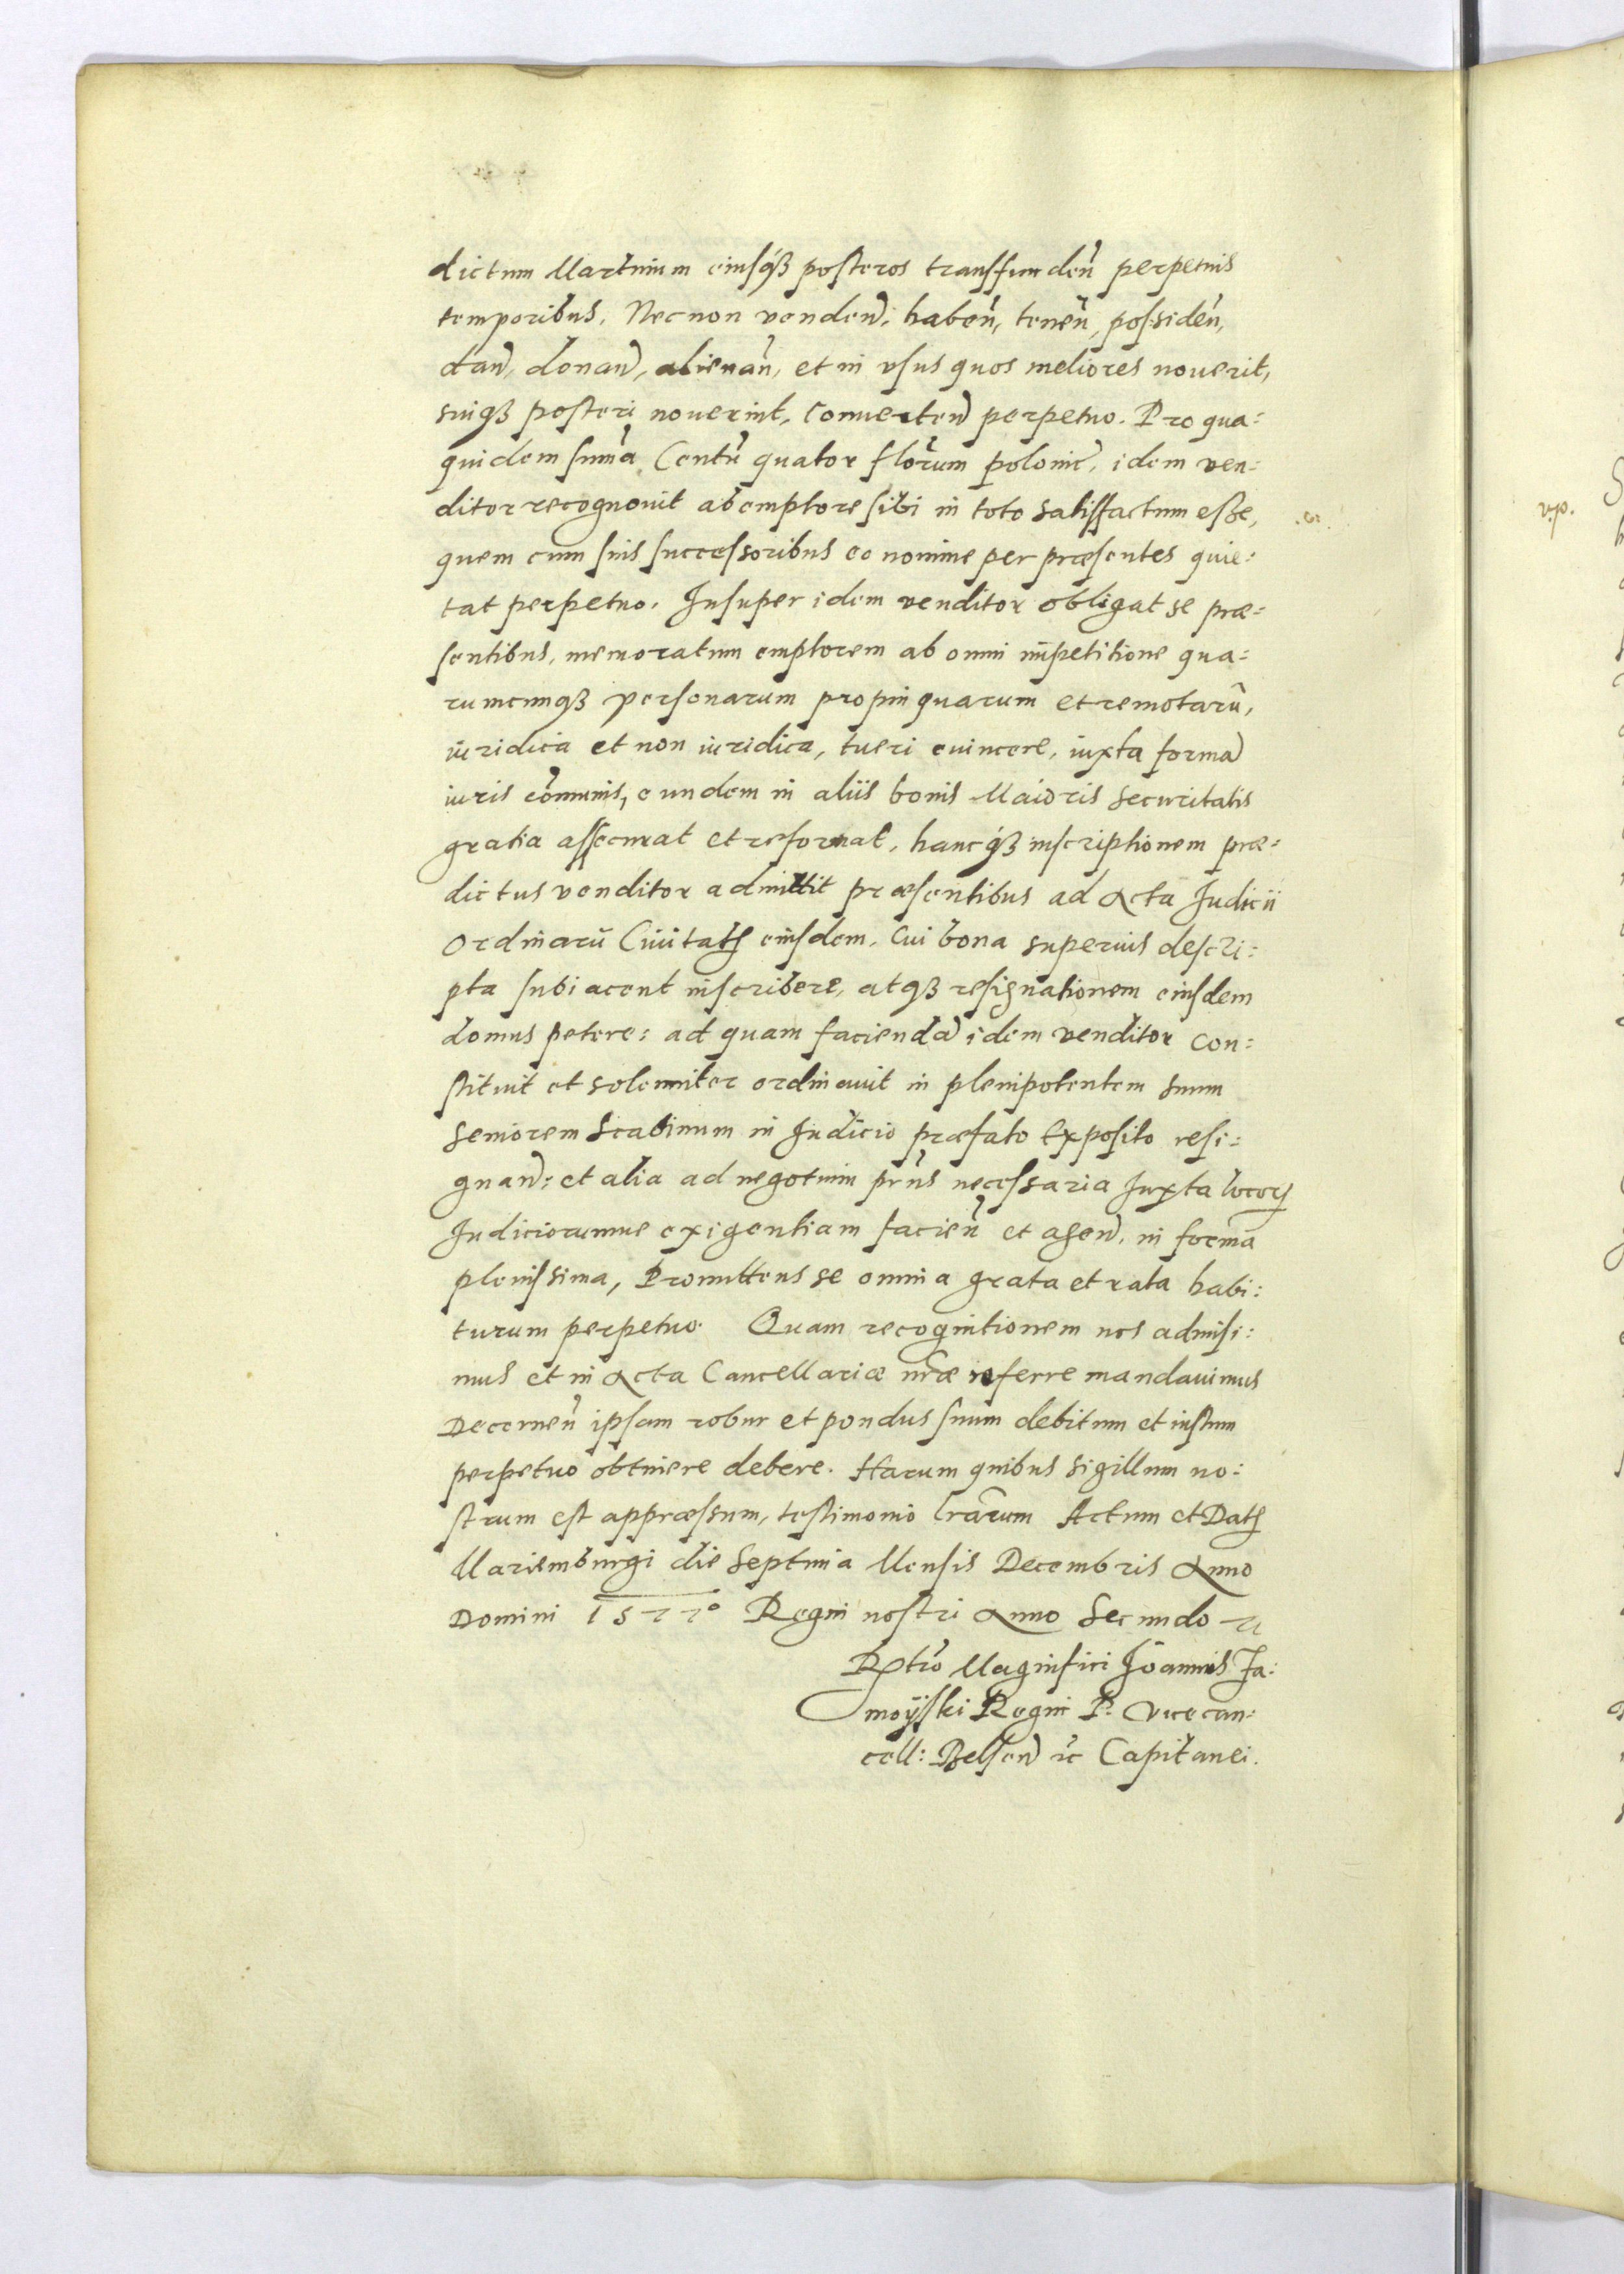 dictum Martinum eiusq́ꝫ posteros transfunden̄ perpetuis
temporibus. Necnon venden̄, haben̄, tenen̄, possiden̄,
dan̄, donan̄, alienan̄, et in vsus quos meliores nouerit,
suiqꝫ posteri nouerint, conuerten̄ perpetuo. Pro qua=
quidem sum̄a Centū quator flōrum polonic̄, idem ven=
ditor recognouit ab emptore sibi in toto satisfactum eße,
quem cum suis successoribus eo nomine per præsentes quie=
tat perpetuo. Insuper idem venditor obligat se præ=
sentibus, memoratum emptorem ab omni impetitione qua=
rumcunqꝫ personarum propinquarum et remotarū,
iuridica et non iuridica, tueri euincere, iuxta formā
iuris com̄unis, eundem in aliis bonis Maioris securitatis
gratia assecurat et reformat, hancq́ꝫ inscriptionem præ=
dictus venditor admittit præsentibus ad Acta Judicii
Ordinarii Ciuitatꝭ eiusdem, Cui bona superius descri=
pta subiacent inscribere, atqꝫ resignationem eiusdem
domus petere: ad quam faciendā idem venditor con=
stituit et solemniter ordinauit in plenipotentem suum
seniorem Scabinum in Judicio præfato Exposito resi=
gnan̄: et alia ad negotium prn̄s necessaria Juxta locoꝝ
Judiciorumue exigentiam facien̄ et agen̄, in forma
plenissima, Promittens se omnia grata et rata habi=
turum perpetuo. Quam recognitionem nos admisi=
mus et in Acta Cancellariæ nr̄æ referre mandauimus
Decernen̄ ipsam robur et pondus suum debitum et iustum
perpetuo obtinere debere. Harum quibus sigillum no=
strum est appræssum, testimonio lr̄arum Actum et Datꝭ
Mariemburgi die Septima Mensis Decembris Anno
Domini 1577º Regni nostri Anno Secundo
Rp̄tio Magnifici Joannis Za=
moÿski Regni P. Vicecan=
cell: Belsen̄ ꝛc Capitanei.
v.p.